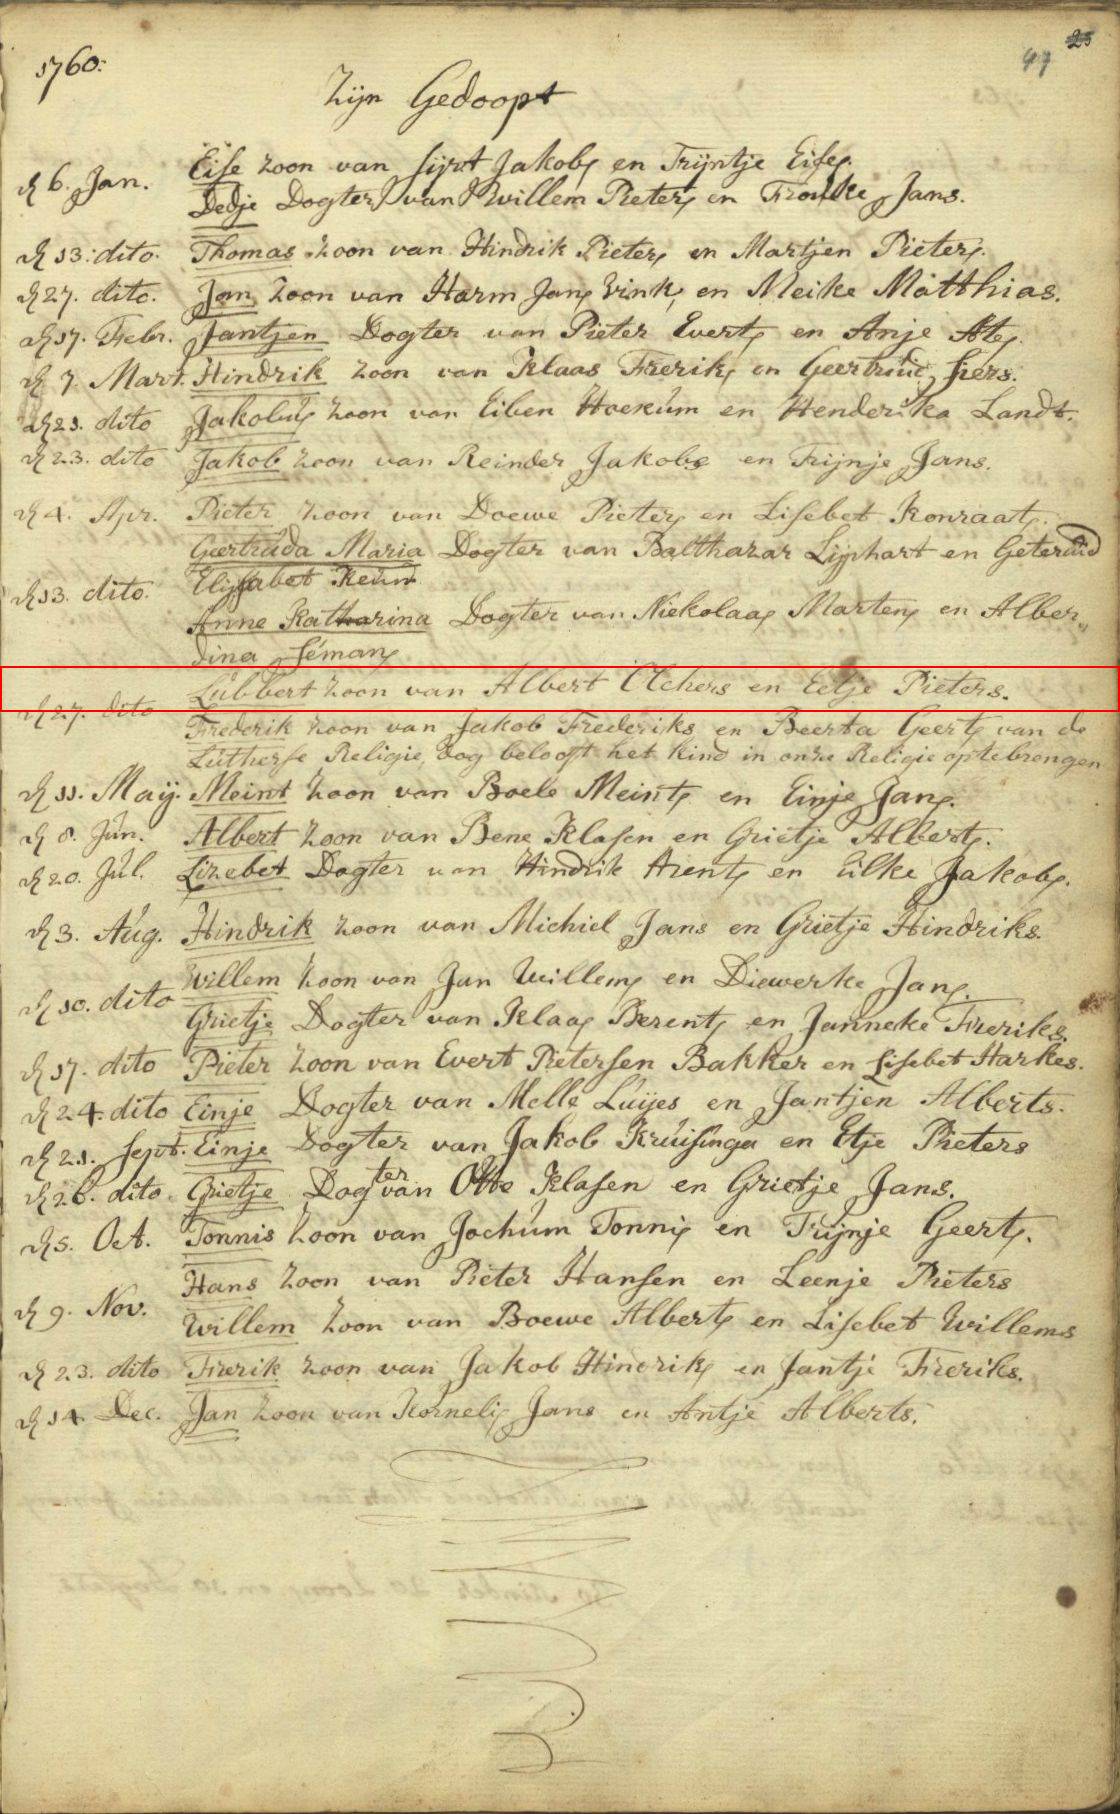 25
47
1760:
Zijn Gedoopt
d 6. Jan. Eise zoon van Sijvt Jakobs en Trijntje Eises.
Dedje Dogter van Willem Pieters en Froukke Jans.
d 13. dito. Thomas zoon van Hindrik Pieters en Martjen Pieters.
d 27. dito. Jan zoon van Harm Jans Vink, en Meike Matthias.
d 17. Febr. Jantjen Dogter van Pieter Everts en Anje Ates.
d 7. Mart. Hindrik zoon van Klaas Freriks en Geertruid Siers.
d 21. dito Jakobus zoon van Eiben Hoekum en Henderika Landt.
d 23. dito Jakob zoon van Reinder Jakobs en Trijnje Jans.
d 4. Apr. Pieter zoon van Doewe Pieters en Lisebet Konraats.
Geertruda Maria Dogter van Balthazar Lijphart en Geteruid
d 13. dito. Elijsabet Keun
Anne Katharina Dogter van Niekolaas Martens en Alber„
dina Semans
Lubbert zoon van Albert Olchers en Eetje Pieters.
d 27. dito
Frederik zoon van Jakob Frederiks en Beerta Geerts van de
Lutherse Religie, dog belooft het kind in onze Religie optebrengen
d 11. Maij. Meint zoon van Boele Meints en Einje Jans.
d 8. Jun. Albert zoon van Bene Klasen en Grietje Alberts.
d 20. Jul. Lizebet Dogter van Hindrik Arents en Eilke Jakobs.
d 3. Aug. Hindrik zoon van Michiel Jans en Grietje Hindriks.
Willem zoon van Jan Willems en Diewerke Jans.
d 10. dito
Grietje Dogter van Klaas Berents en Janneke Freriks.
d 17. dito Pieter zoon van Evert Pietersen Bakker en Lisebet Harkes.
d 24. dito Einje Dogter van Melle Luijes en Jantjen Alberts.
d 21. Sept. Einje Dogter van Jakob Kruisinga en Etje Pieters
d 26. dito. Grietje Dogter van Otto Klasen en Grietje Jans.
d 5. Oct. Tonnis zoon van Jochum Tonnis en Trijnje Geerts.
Hans zoon van Pieter Hansen en Leenje Pieters
d 9. Nov.
Willem zoon van Boewe Alberts en Lisebet Willems
d 23. dito Frerik zoon van Jakob Hindriks en Jantje Freriks.
d 14. Dec. Jan zoon van Kornelis Jans en Antje Alberts.